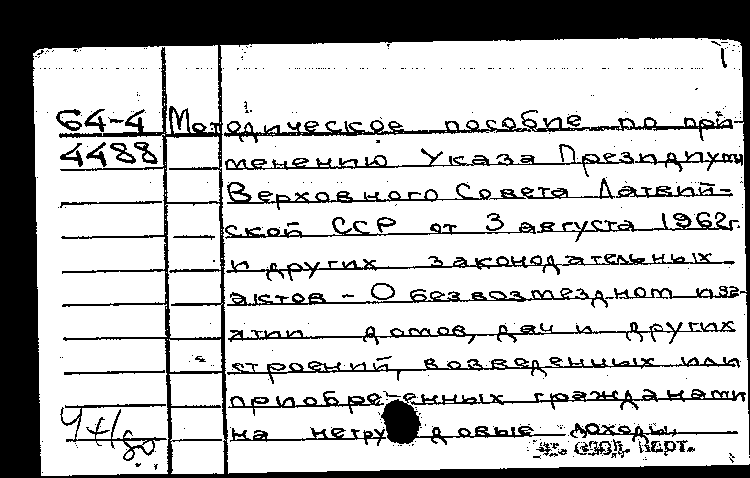 64-4 Методическое пособие по при-
4488 менению Указа Президиума
Верховного Совета Латвий-
ской ССР от 3 августа 1962г.
и других законодательных
актов - О безвозмездном изъ-
ятии домов, дач и других
строений, возведенных или
приобретенных гражданами
на нетрудовые доходы